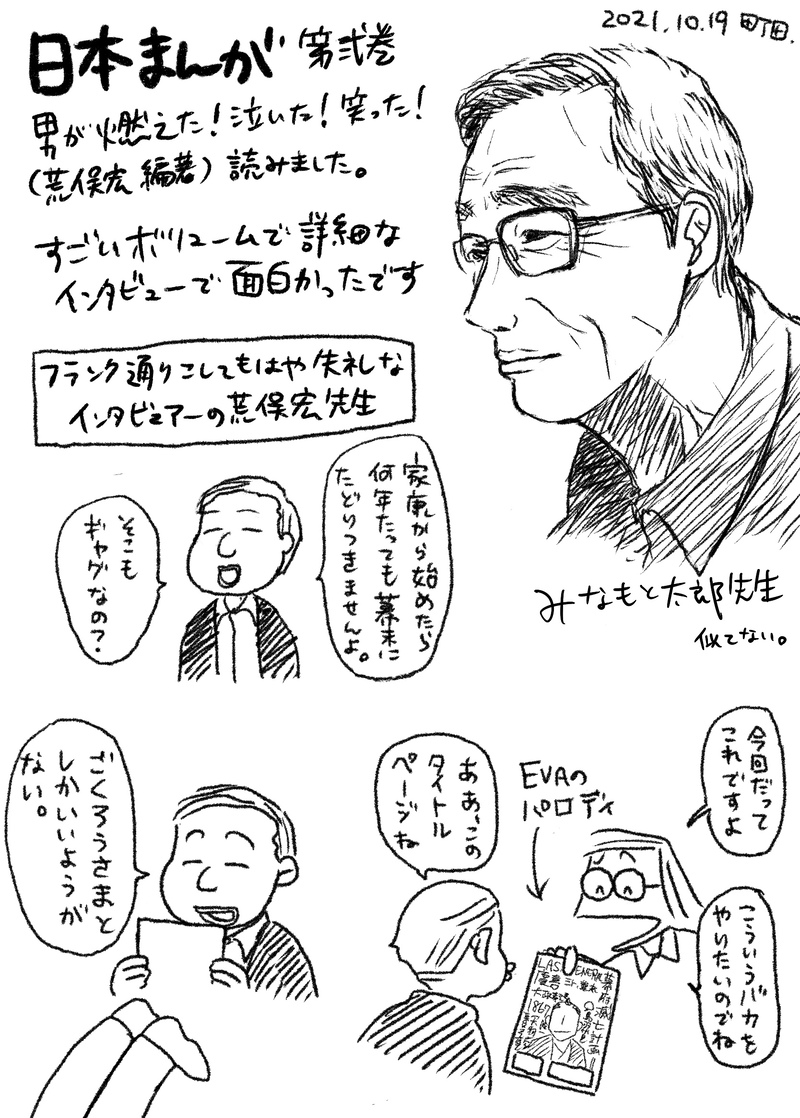 2021.10.19 町田.
日本まんが 第弐巻
男が燃えた!泣いた!笑った!
(荒俣宏 編著) 読みました。
すごいボリュームで詳細な
インタビューで面白かったです
フランク通りこしてもはや失礼な
インタビュアーの荒俣宏先生
みなもと太郎先生
似てない。
家康から始めたら
何年たっても幕末に
たどりつきませんよ。
そこも
ギャグなの?
今回だって
これですよ
こういうバカを
やりたいのでね
EVAの
パロディ
ああ、この
タイトル
ページね
幕府滅亡計画
1867
ごくろうさまと
しかいいようが
ない。